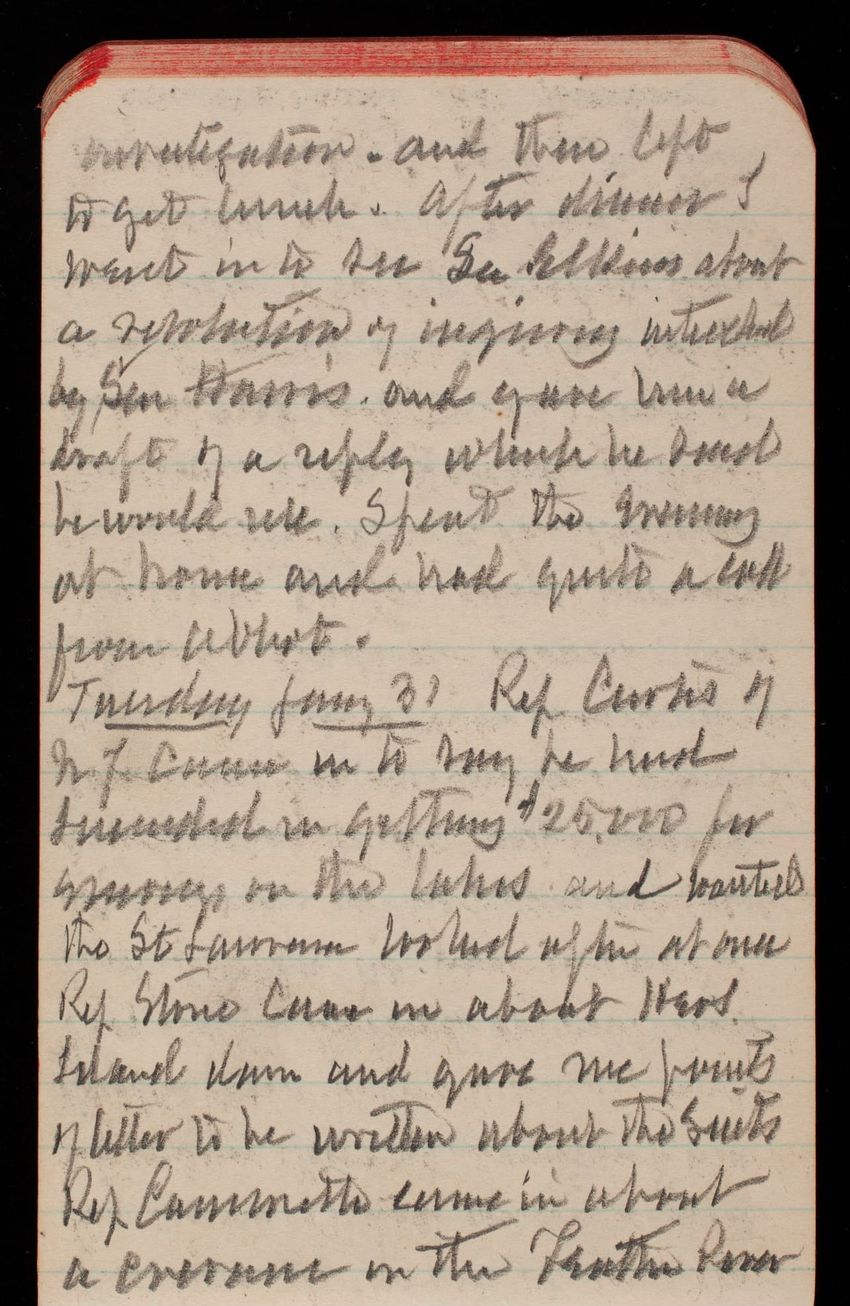 investigation. and then left
to get lunch. After dinner I
went in to see Sen Elkins about
a resolution of inquiry introduced
by Sen Harris. and gave him a
draft of a reply which he said
he would use. Spent the evening
at home and had quite a call
from Abbot.
Tuesday Jany 31 Rep Curtis of
N Y. Came in to say he had
succeeded in getting $25,000 for
surveys on the lakes and wanted
the St Lawrence looked after at once
Rep Stone came in about
Island dam and gave me points
of letter to be written about the Suits
Rep Camminetti came in about
a crevasse on the Feather River